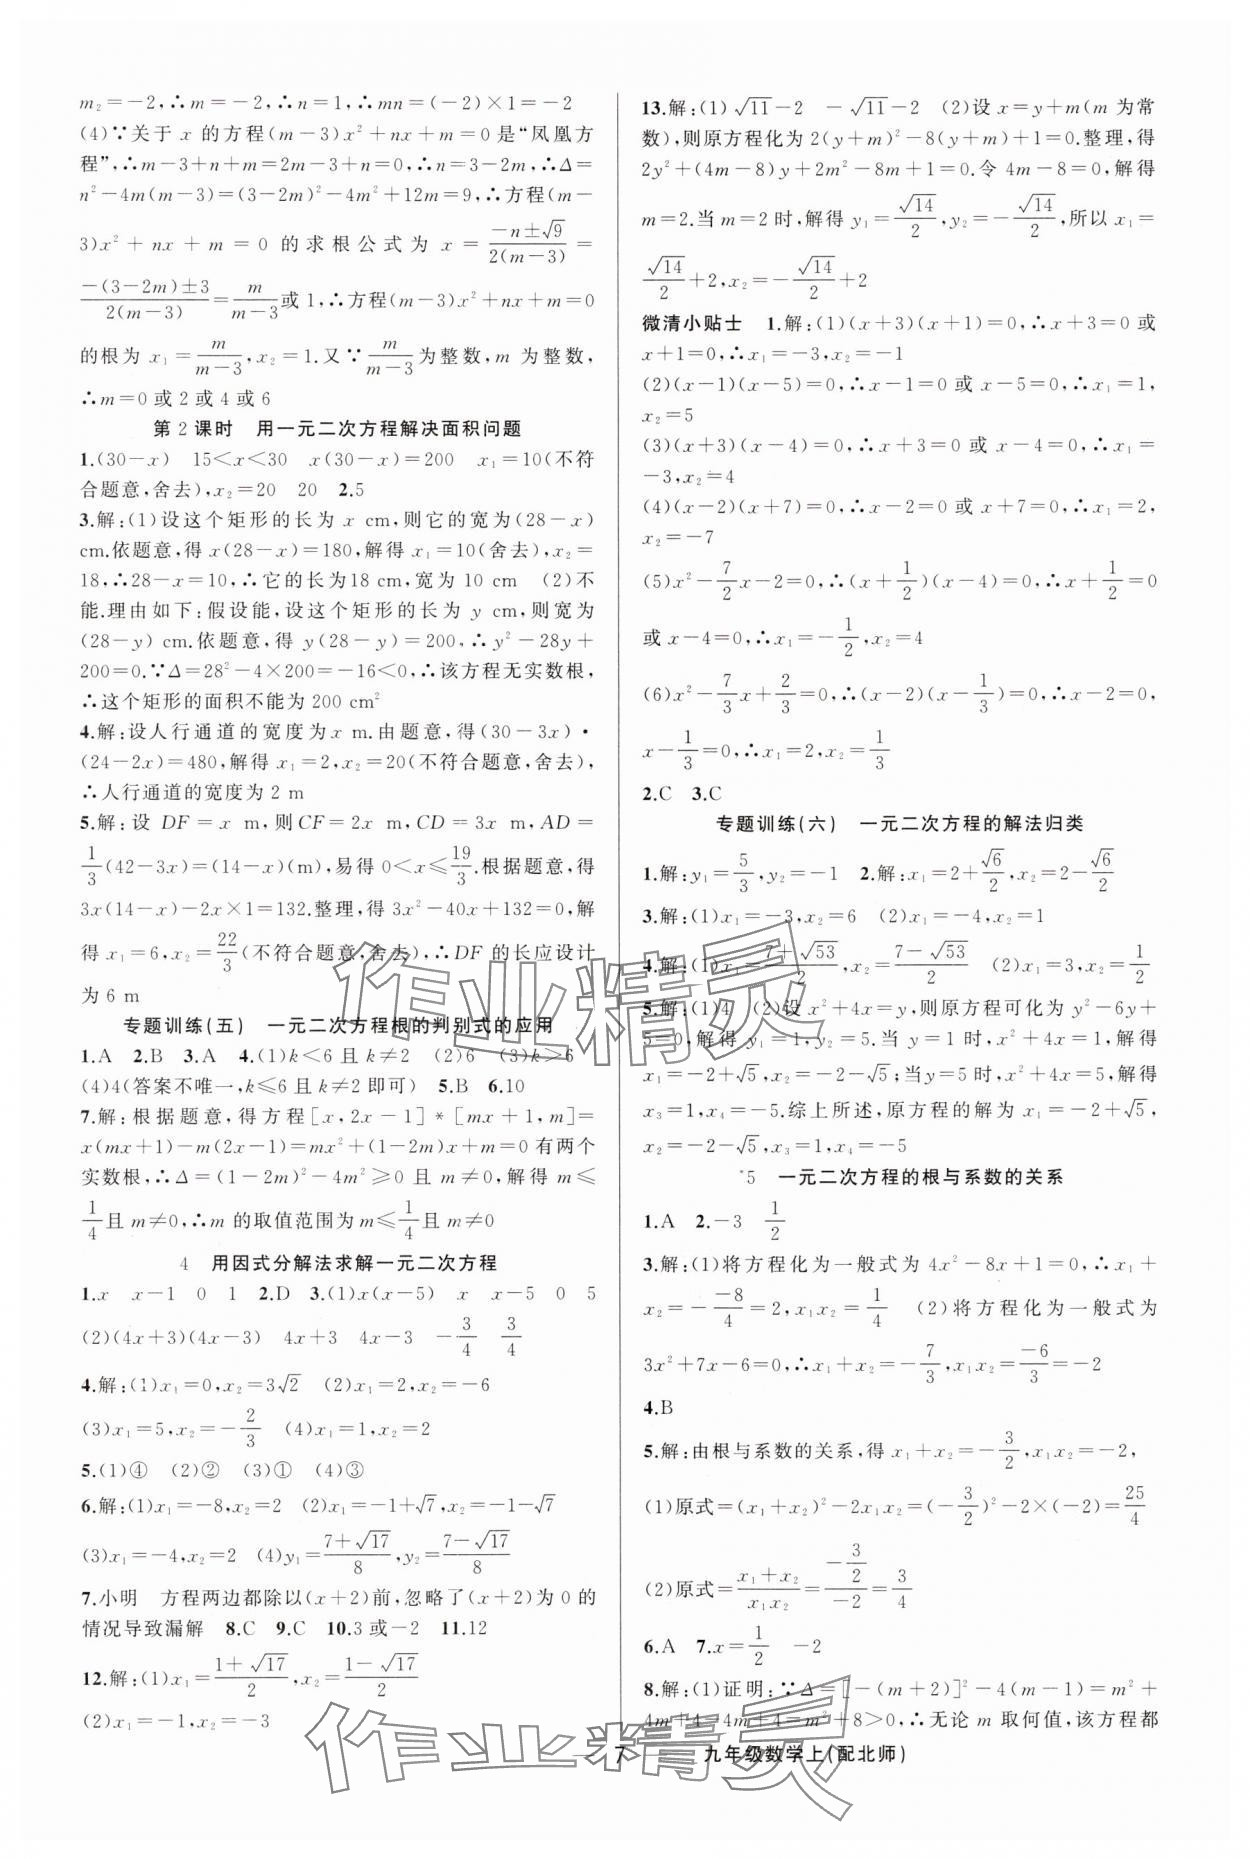 m₂=-2,∴m=-2,∴n=1,∴mn=(-2)×1=-2
(4)∵关于 x 的方程(m-3)x²+nx+m=0是“凤凰方
程”,∴m-3+n+m=2m-3+n=0,∴n=3-2m,∴Δ=
n²-4m(m-3)=(3-2m)²-4m²+12m=9,∴方程(m-
3)x²+nx+m=0 的求根公式为 x=(-n±√9)/(2(m-3))=
(-(3-2m)±3)/(2(m-3))=m/(m-3)或1,∴方程(m-3)x²+nx+m=0
的根为 x₁=m/(m-3),x₂=1.又∵m/(m-3)为整数,m 为整数,
∴m=0或2或4或6
第2课时 用一元二次方程解决面积问题
1.(30-x) 15<x<30 x(30-x)=200 x₁=10(不符
合题意,舍去),x₂=20 20 2.5
3.解:(1)设这个矩形的长为 x cm,则它的宽为(28-x)
cm.依题意,得 x(28-x)=180,解得 x₁=10(舍去),x₂=
18,∴28-x=10,∴它的长为18 cm,宽为 10 cm (2)不
能.理由如下:假设能,设这个矩形的长为 y cm,则宽为
(28-y) cm.依题意,得 y(28-y)=200,∴y²-28y+
200=0.∵Δ=28²-4×200=-16<0,∴该方程无实数根,
∴这个矩形的面积不能为 200 cm²
4.解:设人行通道的宽度为 x m.由题意,得(30-3x)·
(24-2x)=480,解得 x₁=2,x₂=20(不符合题意,舍去),
∴人行通道的宽度为 2 m
5.解:设 DF=x m,则CF=2x m,CD=3x m,AD=
1/3(42-3x)=(14-x)(m),易得 0<x≤19/3.根据题意,得
3x(14-x)-2x×1=132.整理,得 3x²-40x+132=0,解
得 x₁=6,x₂=22/3(不符合题意,舍去),∴DF 的长应设计
为 6 m
专题训练(五) 一元二次方程根的判别式的应用
1.A 2.B 3.A 4.(1)k<6且k≠2 (2)6 (3)k>6
(4)4(答案不唯一,k≤6且k≠2即可) 5.B 6.10
7.解:根据题意,得方程[x,2x-1]*[mx+1,m]=
x(mx+1)-m(2x-1)=mx²+(1-2m)x+m=0有两个
实数根,∴Δ=(1-2m)²-4m²≥0且 m≠0,解得 m≤
1/4且m≠0,∴m 的取值范围为m≤1/4且m≠0
4 用因式分解法求解一元二次方程
1.x x-1 0 1 2.D 3.(1)x(x-5) x x-5 0 5
(2)(4x+3)(4x-3) 4x+3 4x-3 -3/4 3/4
4.解:(1)x₁=0,x₂=3√2 (2)x₁=2,x₂=-6
(3)x₁=5,x₂=-2/3 (4)x₁=1,x₂=2
5.(1)④ (2)② (3)① (4)③
6.解:(1)x₁=-8,x₂=2 (2)x₁=-1+√7,x₂=-1-√7
(3)x₁=-4,x₂=2 (4)y₁=(7+√17)/8,y₂=(7-√17)/8
7.小明 方程两边都除以(x+2)前,忽略了(x+2)为 0 的
情况导致漏解 8.C 9.C 10.3或-2 11.12
12.解:(1)x₁=(1+√17)/2,x₂=(1-√17)/2
(2)x₁=-1,x₂=-3
13.解:(1)√11-2 -√11-2 (2)设 x=y+m(m 为常
数),则原方程化为 2(y+m)²-8(y+m)+1=0.整理,得
2y²+(4m-8)y+2m²-8m+1=0.令 4m-8=0,解得
m=2.当 m=2 时,解得 y₁=√14/2,y₂=-√14/2,所以 x₁=
√14/2+2,x₂=-√14/2+2
微清小贴士 1.解:(1)(x+3)(x+1)=0,∴x+3=0 或
x+1=0,∴x₁=-3,x₂=-1
(2)(x-1)(x-5)=0,∴x-1=0 或 x-5=0,∴x₁=1,
x₂=5
(3)(x+3)(x-4)=0,∴x+3=0 或 x-4=0,∴x₁=
-3,x₂=4
(4)(x-2)(x+7)=0,∴x-2=0 或 x+7=0,∴x₁=2,
x₂=-7
(5)x²-7/2x-2=0,∴(x+1/2)(x-4)=0,∴x+1/2=0
或 x-4=0,∴x₁=-1/2,x₂=4
(6)x²-7/3x+2/3=0,∴(x-2)(x-1/3)=0,∴x-2=0,
x-1/3=0,∴x₁=2,x₂=1/3
2.C 3.C
专题训练(六) 一元二次方程的解法归类
1.解:y₁=5/3,y₂=-1 2.解:x₁=2+√6/2,x₂=2-√6/2
3.解:(1)x₁=-3,x₂=6 (2)x₁=-4,x₂=1
4.解:(1)x₁=(7+√53)/2,x₂=(7-√53)/2 (2)x₁=3,x₂=1/2
5.解:(1)4 (2)设 x²+4x=y,则原方程可化为 y²-6y+
5=0,解得 y₁=1,y₂=5.当 y=1 时,x²+4x=1,解得
x₁=-2+√5,x₂=-2-√5;当y=5时,x²+4x=5,解得
x₃=1,x₄=-5.综上所述,原方程的解为 x₁=-2+√5,
x₂=-2-√5,x₃=1,x₄=-5
*5 一元二次方程的根与系数的关系
1.A 2.-3 1/2
3.解:(1)将方程化为一般式为 4x²-8x+1=0,∴x₁+
x₂=-(-8)/4=2,x₁x₂=1/4 (2)将方程化为一般式为
3x²+7x-6=0,∴x₁+x₂=-7/3,x₁x₂=-6/3=-2
4.B
5.解:由根与系数的关系,得 x₁+x₂=-3/2,x₁x₂=-2,
(1)原式=(x₁+x₂)²-2x₁x₂=(-3/2)²-2×(-2)=25/4
(2)原式=(x₁+x₂)/(x₁x₂)=(-3/2)/(-2)=3/4
6.A 7.x=1/2 -2
8.解:(1)证明:∵Δ=[-(m+2)]²-4(m-1)=m²+
4m+4-4m+4=m²+8>0,∴无论 m 取何值,该方程都
7 九年级数学上(配北师)
作业精灵
作业精灵